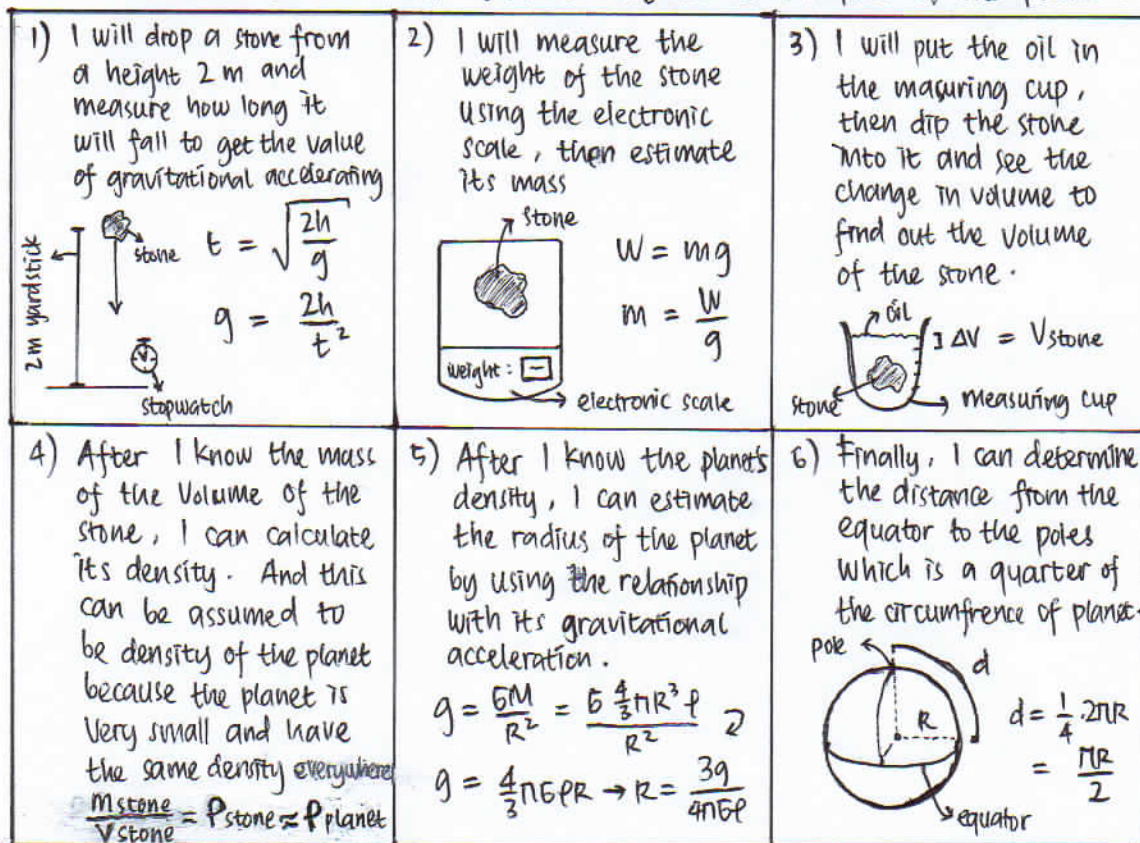 1) I will drop a stone from
a height 2 m and
measure how long it
will fall to get the value
of gravitational accelerating
2m yardstick
stone
t = √(2h/g)
g = 2h/t²
stopwatch
2) I will measure the
weight of the stone
using the electronic
scale, then estimate
its mass
stone
W = mg
m = W/g
weight:
electronic scale
3) I will put the oil in
the masuring cup,
then dip the stone
into it and see the
change in volume to
find out the volume
of the stone.
oil
ΔV = Vstone
stone
measuring cup
4) After I know the mass
of the volume of the
stone, I can calculate
its density. And this
can be assumed to
be density of the planet
because the planet is
very small and have
the same density everywhere
mstone/Vstone = ρstone ≈ ρplanet
5) After I know the planet's
density, I can estimate
the radius of the planet
by using the relationship
with its gravitational
acceleration.
g = GM/R² = G 4/3 πR³ρ/R²
g = 4/3 πGρR → R = 3g/4πGρ
6) Finally, I can determine
the distance from the
equator to the poles
which is a quarter of
the circumfrence of planet.
pole
d
R
d = 1/4 · 2πR
= πR/2
equator